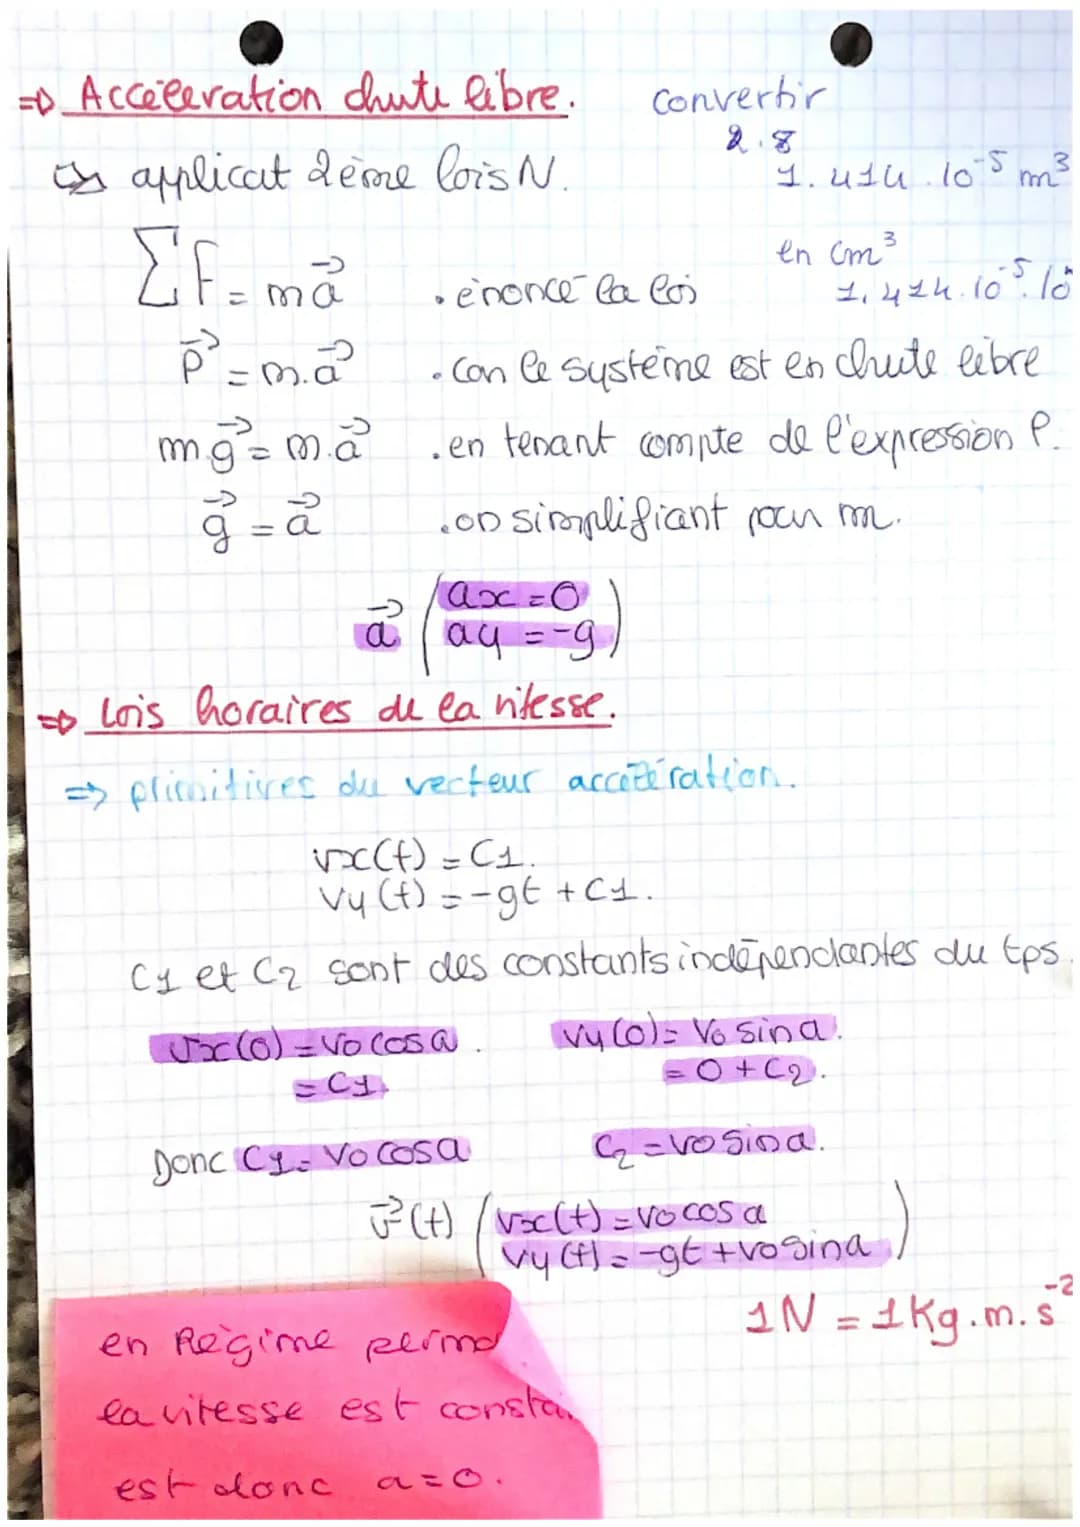 => Accéleration chute libre.
convertir
2.8
1.414.10^-5 m^3
↳ applicat 2ème lois N.
en cm^3
1,414.10^-5.10
ΣF = m a⃗
. énoncé la loi
P⃗ = m.a⃗
. Car le système est en chute libre
m.g⃗ = m.a⃗
. en tenant compte de l'expression P.
g⃗ = a⃗
. on simplifiant par m.
a⃗ ( ax = 0
ay = -g )
=> Lois horaires de la vitesse.
=> primitives du vecteur accélération.
vx(t) = C1.
vy(t) = -gt + C1.
C1 et C2 sont des constants indépendantes du tps.
vx(0) = v0 cos a.
= C1.
vy(0) = v0 sin a.
= 0 + C2.
Donc C1 = v0 cos a
C2 = v0 sin a.
v⃗(t) ( vx(t) = v0 cos a
vy(t) = -gt + v0 sin a )
1N = 1Kg.m.s^-2
en Régime perma
la vitesse est constan
est donc a = 0.